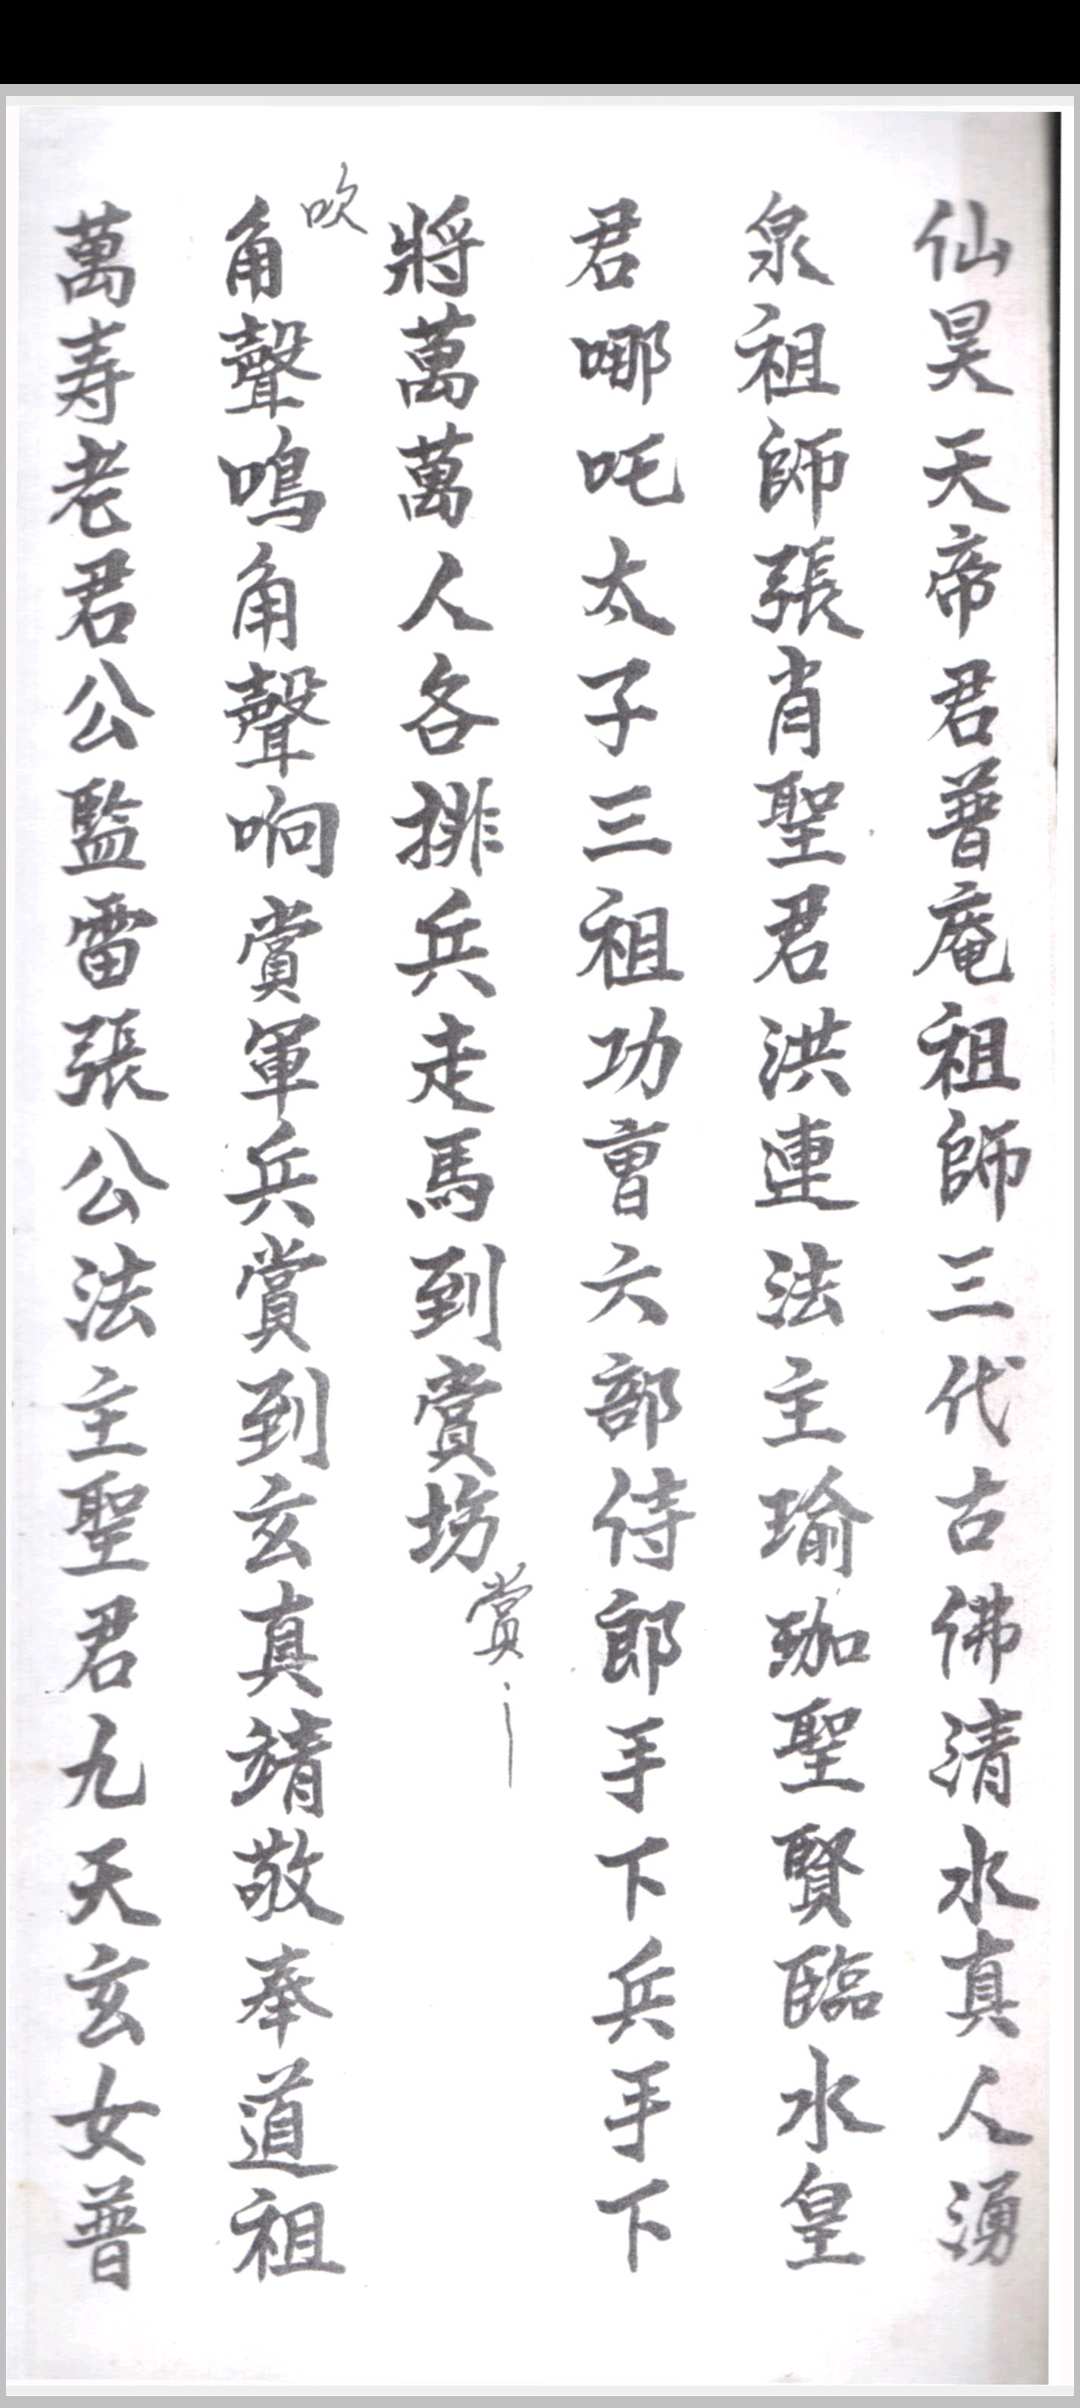 仙昊天帝君普庵祖師三代古佛清水真人湧
泉祖師張肖聖君洪連法主瑜珈聖賢臨水皇
君哪吒太子三祖功曺六部侍郎手下兵手下
將萬萬人各排兵走馬到賞場
賞
吹
角聲鳴角聲响賞軍兵賞到玄真靖敬奉道祖
萬寿老君公監雷張公法主聖君九天玄女普